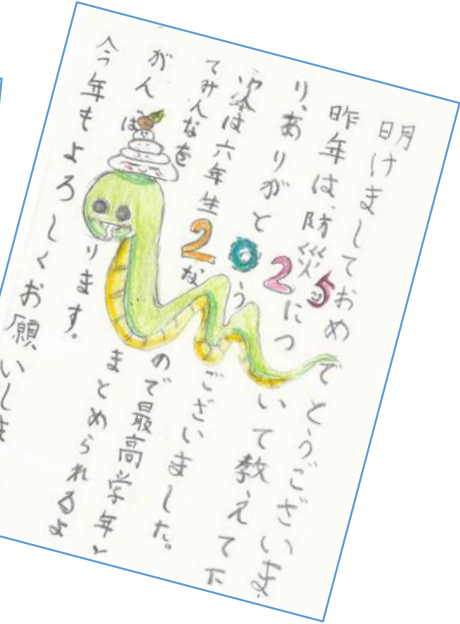 明けましておめでとうございま
昨年は、防災について教えて下
り、ありがとうございました。
次は六年生なので最高学年と
てみんなをまとめられるよ
がんばります。
今年もよろしくお願いしま
2025